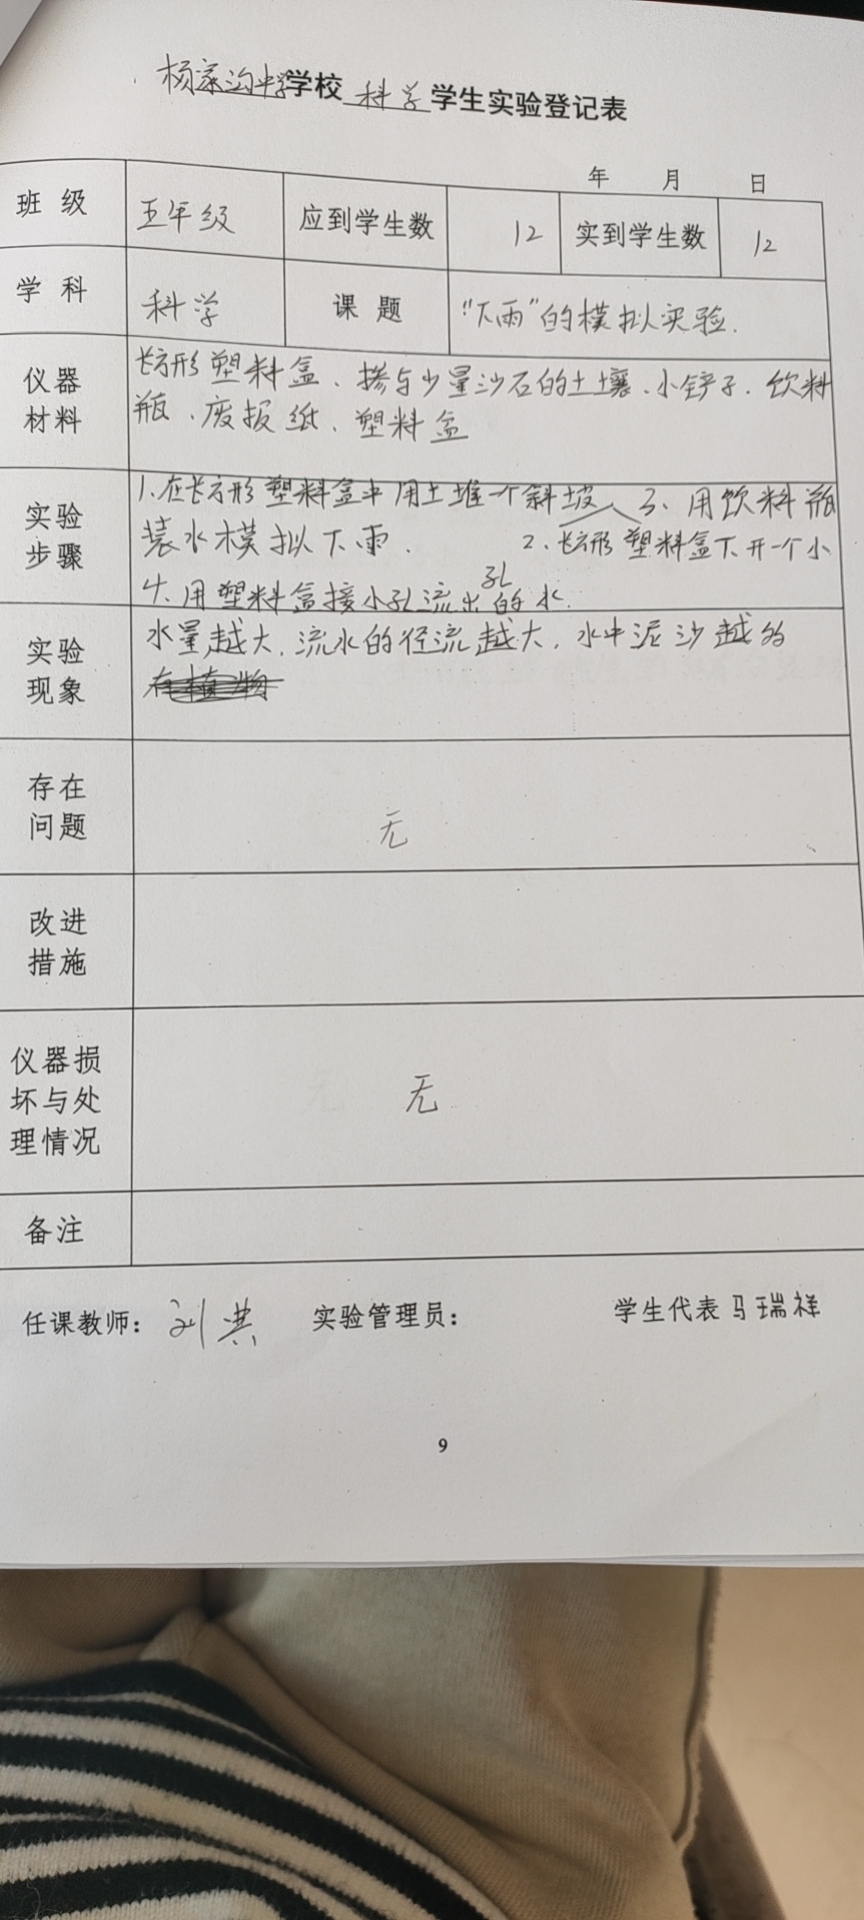 杨家沟中学学校 科学 学生实验登记表
年 月 日
班级 五年级 应到学生数 12 实到学生数 12
学科 科学 课题 “下雨”的模拟实验.
仪器材料 长方形塑料盒、掺与少量沙石的土壤、小铲子、饮料
瓶、废报纸、塑料盒
实验步骤 1.在长方形塑料盒中用土堆一个斜坡 3、用饮料瓶
装水模拟下雨. 2、长方形塑料盒下开一个小
孔
4、用塑料盒接小孔流出的水.
实验现象 水量越大,流水的径流越大,水中泥沙越多
存在问题 无
改进措施
仪器损坏与处理情况 无
备注
任课教师: 刘 实验管理员: 学生代表 马瑞祥
9